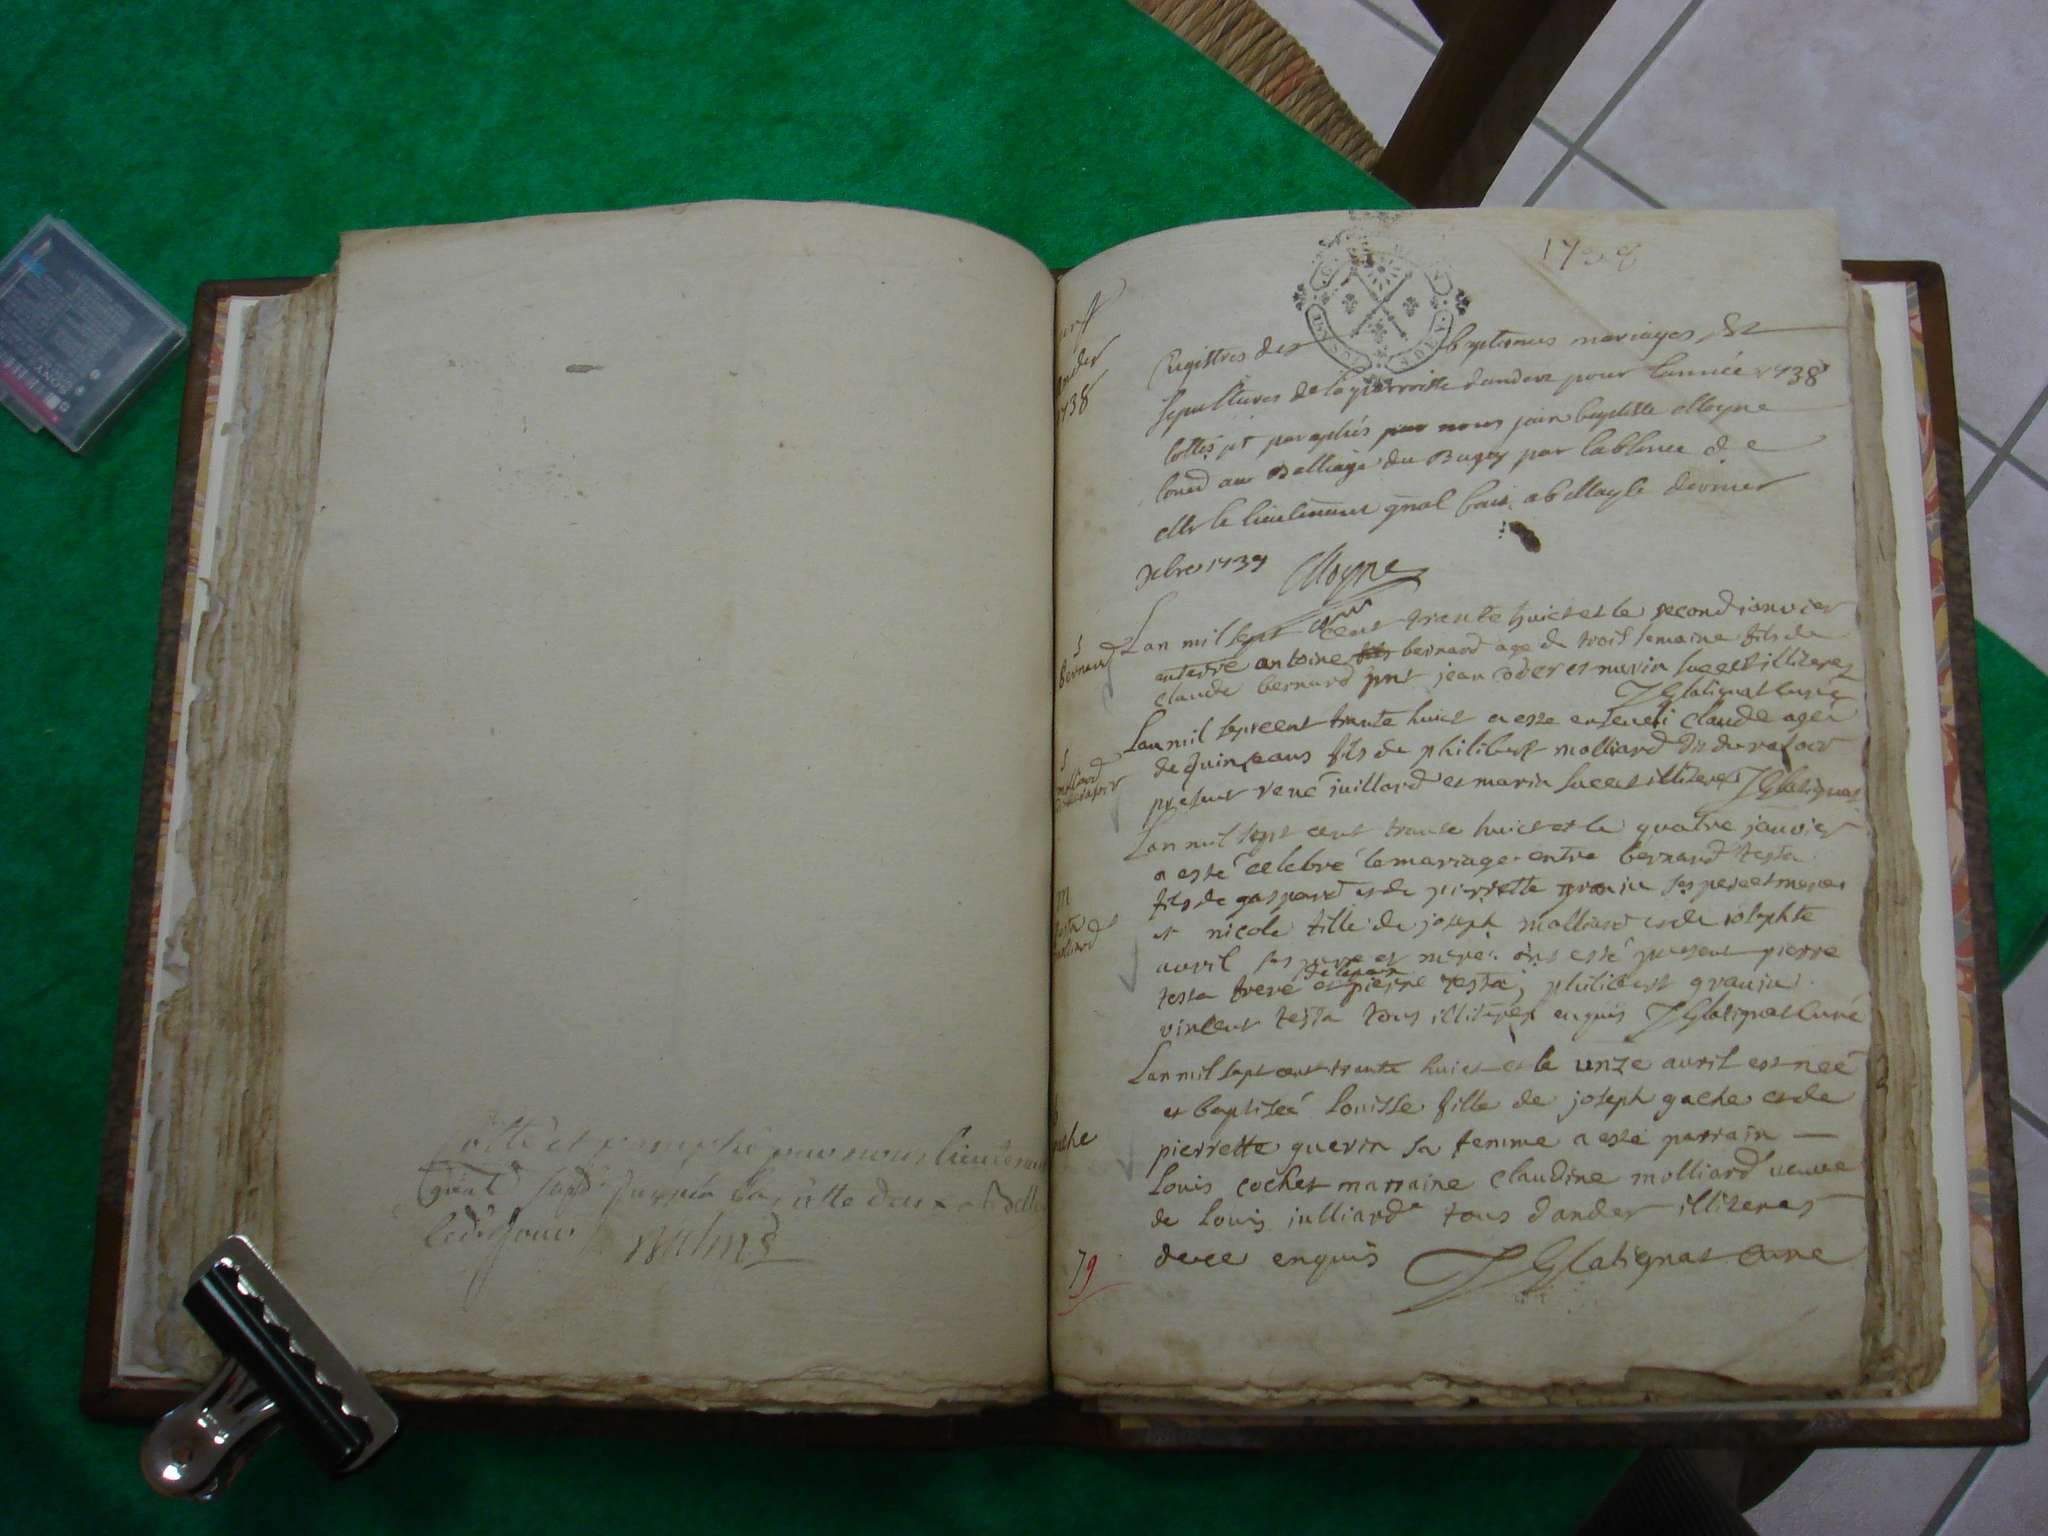 Cotté et paraphé par nous lieutenant
ledit jour
1738
ander
1738
Registres des baptemes mariages &
sepultures de la parroisse dandert pour lannée 1738
cottés et paraphés par nous jean baptiste Moyne
au Balliage du Bugey par lablence de
Mr le lieutenant gnal dernier
Xbre 1737 Moyne
S
Bernard
Lan mil sept cent trente huict et le second janvier
enterré antoine bernard age de trois semaine fils de
claude bernard pnt jean et marin illiteres
JGlatignat Curé
S
molliard
Lan mil sept cent trante huict a esté enseveli claude agé
de quinze ans fils de philibert molliard dit du rafour
present rené juillard et marin illiteres JGlatignat
M
testa
molliard
Lan mil sept cent trante huict et le quatre janvier
a esté celebré le mariage entre bernard testa
fils de gaspard et de pierrette granju ses pere et mere
et nicole fille de joseph molliard et de
avril ses pere et mere ont esté present pierre
testa frere et pierre testa philibert granju
vincent testa tous illiteres enquis JGlatignat Curé
gache
Lan mil sept cent trante huict et le unze avril est neé
et baptiseé Louisse fille de joseph gache et de
pierrette guerin sa femme a esté parrain
Louis cochet marraine claudine molliard veuve
de Louis julliard tous dander illiteres
de ce enquis JGlatignat Curé
79